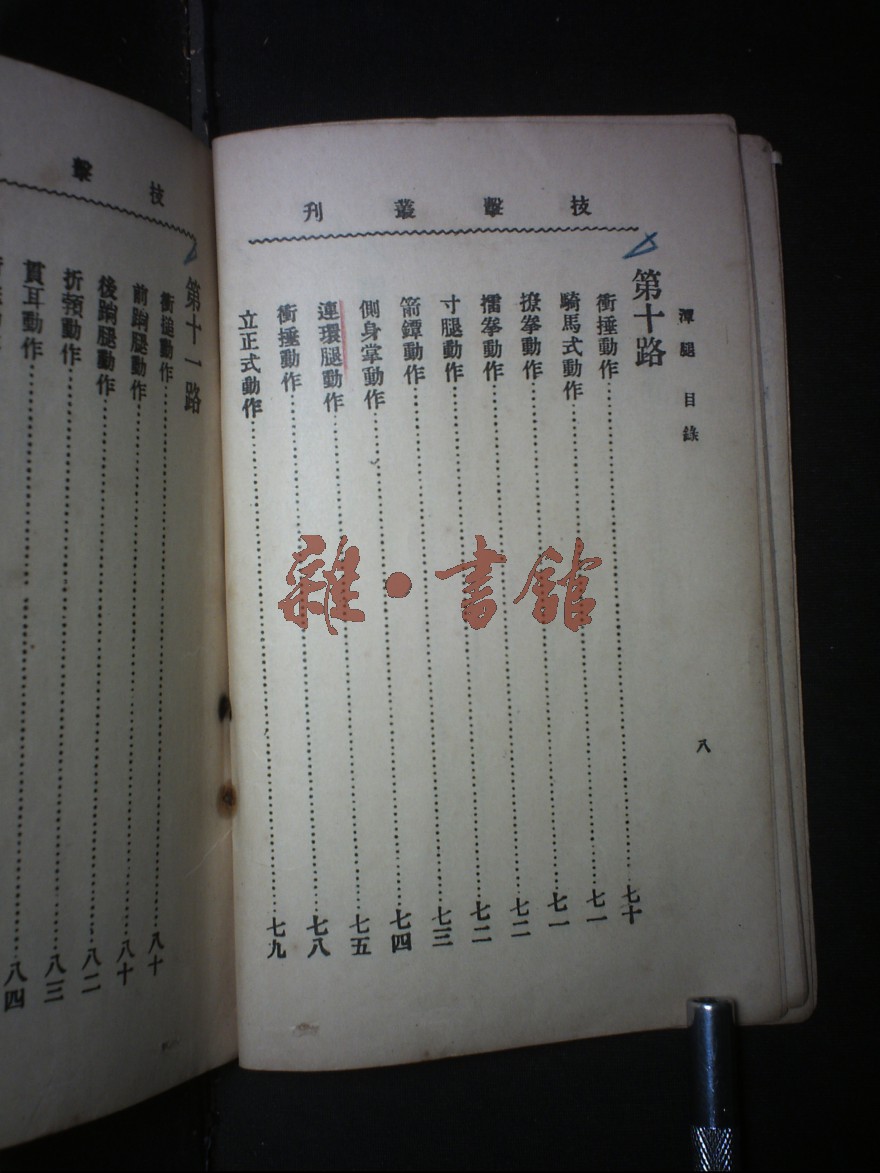 技擊叢刊
潭腿 目錄
八
第十路
衝捶動作……七十
騎馬式動作……七一
撩拳動作……七一
擂拳動作……七二
寸腿動作……七二
箭鐔動作……七三
側身掌動作……七四
連環腿動作……七五
衝捶動作……七八
立正式動作……七九
雜·書館
技擊
第十一路
衝搥動作……八十
前腿動作……八十
後腿動作……八二
折動作……八三
貫耳動作……八四